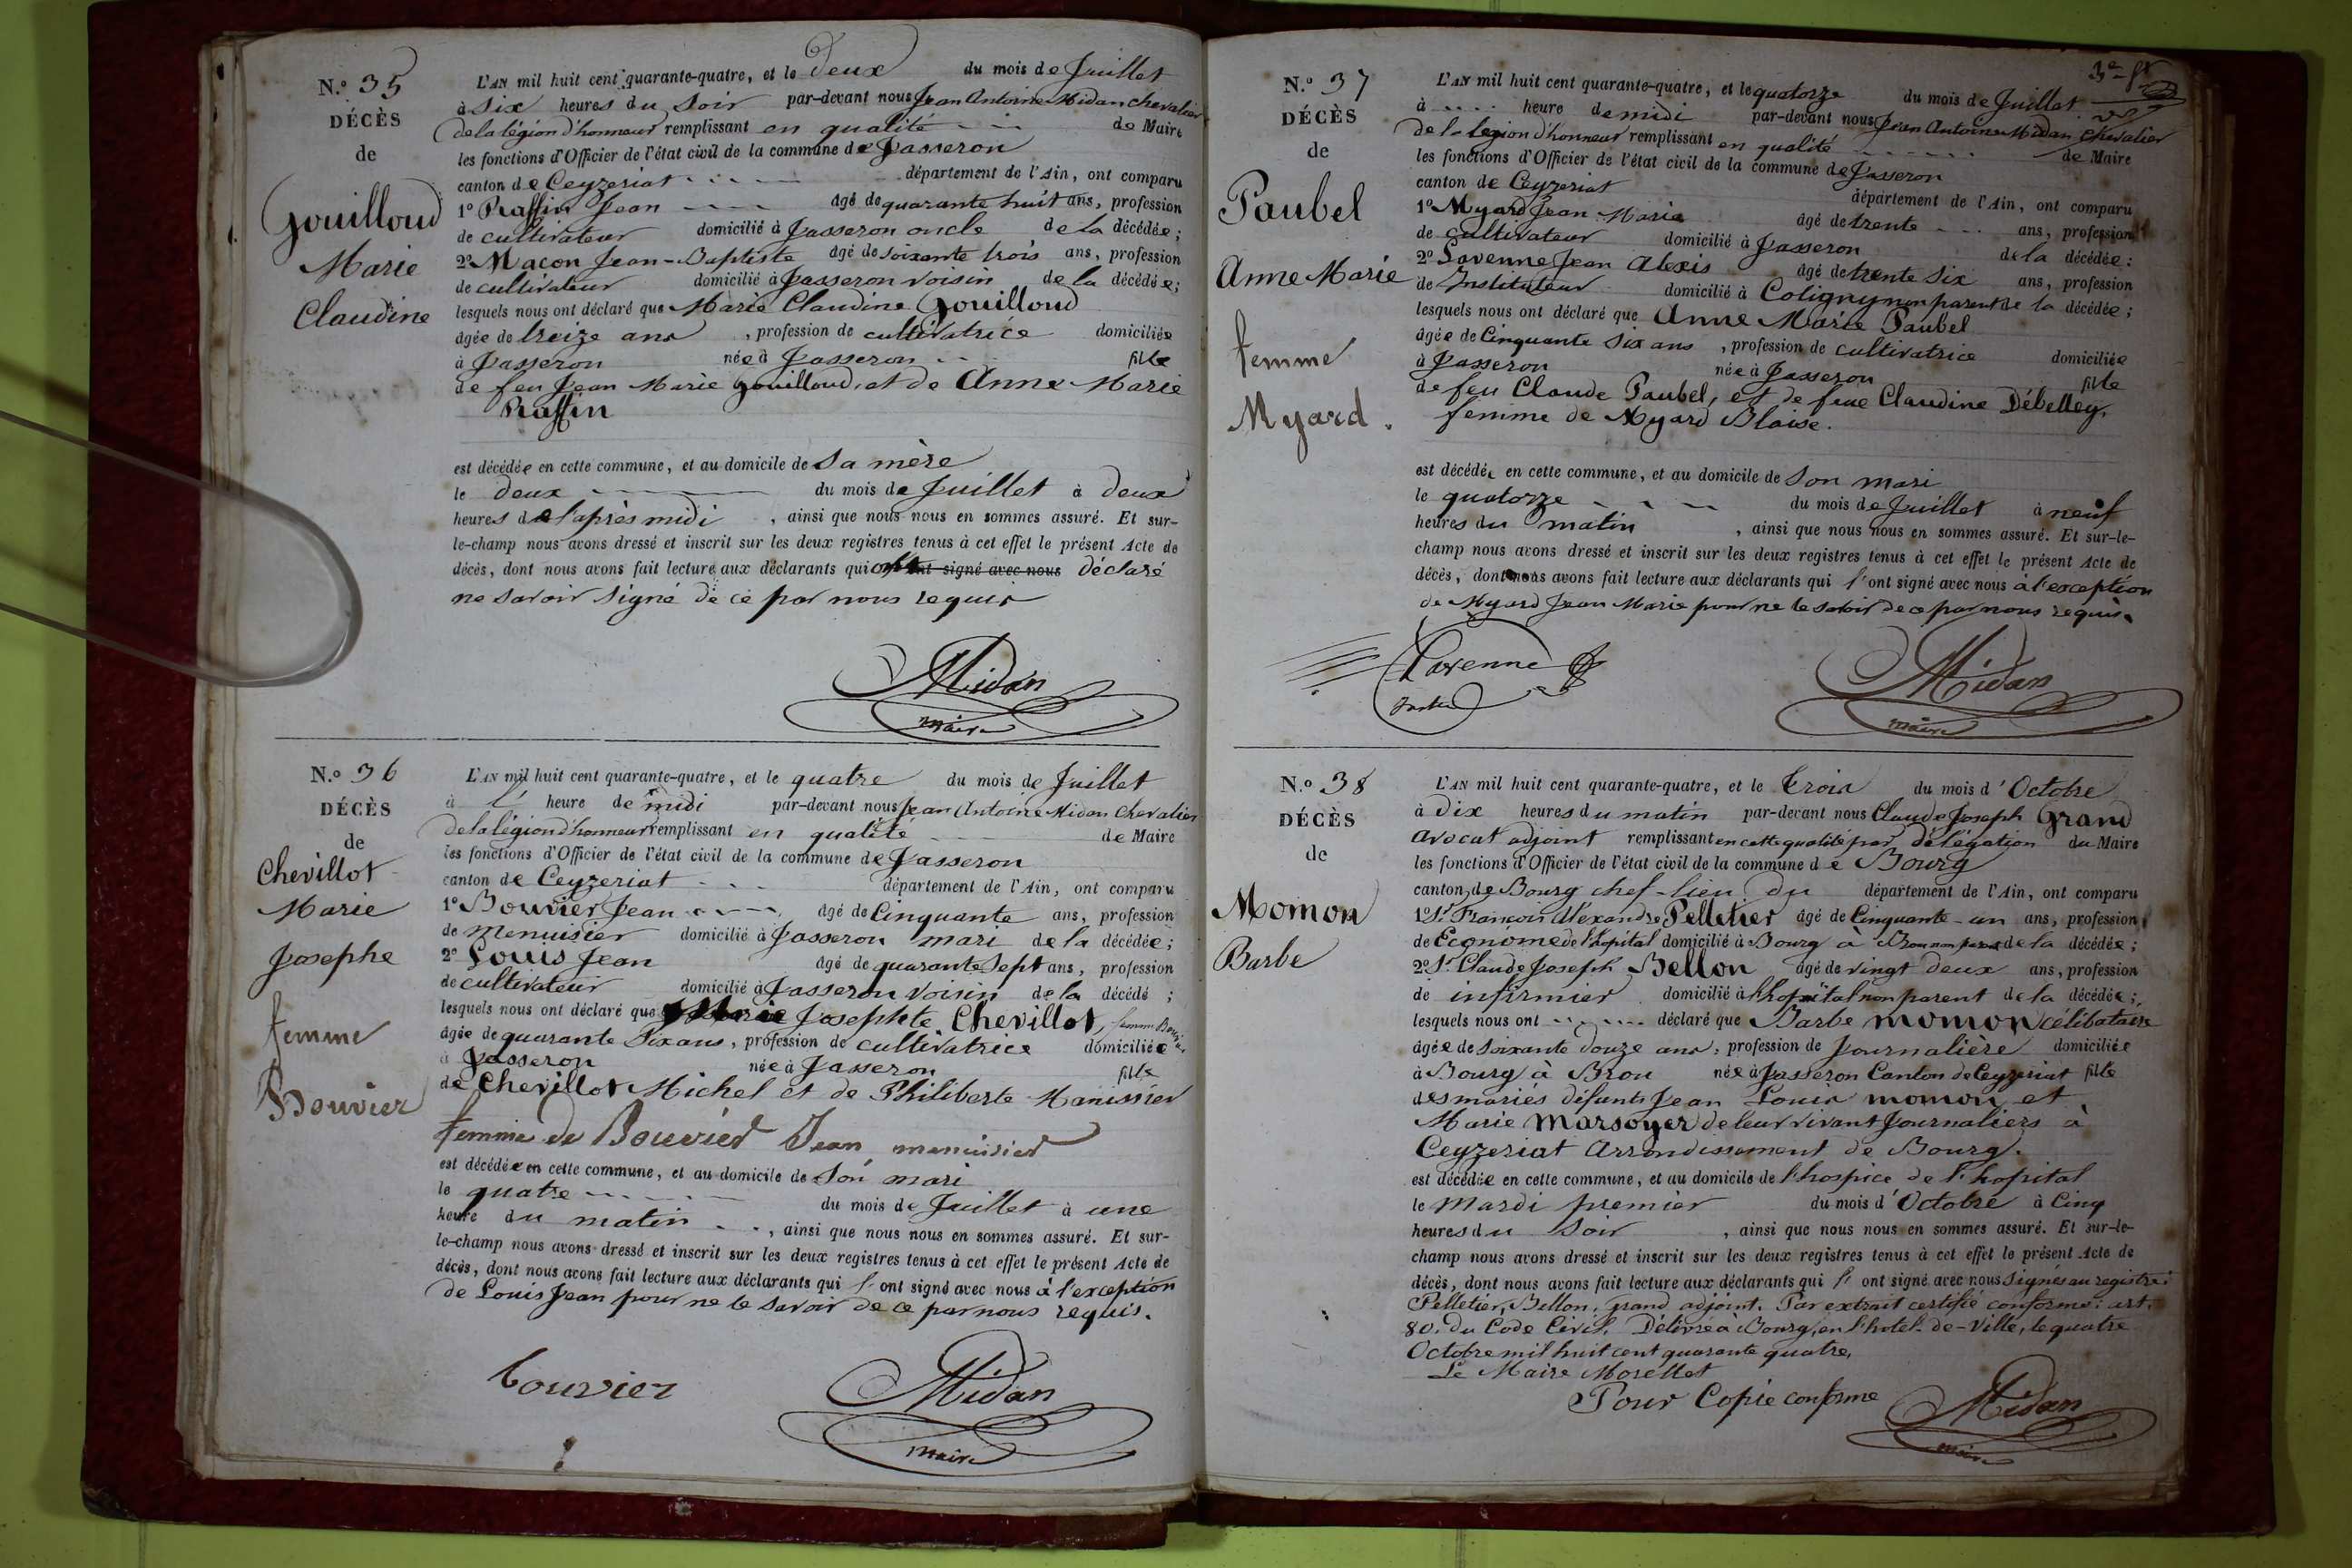 N.º 35
DÉCÈS
de
Gouilloud
Marie
Claudine
L'AN mil huit cent quarante-quatre, et le Deux du mois de Juillet
à six heures du soir par-devant nous Jean Antoine Midan chevalier
de la légion d'honneur remplissant en qualité de Maire
les fonctions d'Officier de l'état civil de la commune de Jasseron
canton de Ceyzeriat département de l'Ain, ont comparu
1º Raffin Jean âgé de quarante huit ans, profession
de cultivateur domicilié à Jasseron oncle de la décédée;
2º Macon Jean-Baptiste âgé de soixante trois ans, profession
de cultivateur domicilié à Jasseron voisin de la décédée;
lesquels nous ont déclaré que Marie Claudine Gouilloud
âgée de treize ans, profession de cultivatrice domiciliée
à Jasseron née à Jasseron fille
de feu Jean Marie Gouilloud, et de Anne Marie
Raffin
est décédée en cette commune, et au domicile de sa mère
le deux du mois de Juillet à deux
heures de l'après midi, ainsi que nous nous en sommes assuré. Et sur-
le-champ nous avons dressé et inscrit sur les deux registres tenus à cet effet le présent Acte de
décès, dont nous avons fait lecture aux déclarants qui ont signé avec nous déclaré
ne savoir signé de ce par nous requis
Midan
maire
N.º 36
DÉCÈS
de
Chevillot
Marie
Josephe
femme
Bouvier
L'AN mil huit cent quarante-quatre, et le quatre du mois de Juillet
à l' heure de midi par-devant nous Jean Antoine Midan Chevalier
de la légion d'honneur remplissant en qualité de Maire
les fonctions d'Officier de l'état civil de la commune de Jasseron
canton de Ceyzeriat département de l'Ain, ont comparu
1º Bouvier Jean âgé de Cinquante ans, profession
de Menuisier domicilié à Jasseron mari de la décédée;
2º Louis Jean âgé de quarante sept ans, profession
de cultivateur domicilié à Jasseron voisin de la décédé;
lesquels nous ont déclaré que Marie Josephte Chevillot, femme Bouvier
âgée de quarante Six ans, profession de cultivatrice domiciliée
à Jasseron née à Jasseron fille
de Chevillot Michel et de Philiberte Manissier
femme de Bouvier Jean menuisier
est décédée en cette commune, et au domicile de son mari
le quatre du mois de Juillet à une
heure du matin, ainsi que nous nous en sommes assuré. Et sur-
le-champ nous avons dressé et inscrit sur les deux registres tenus à cet effet le présent Acte de
décès, dont nous avons fait lecture aux déclarants qui l'ont signé avec nous à l'exception
de Louis Jean pour ne le savoir de ce par nous requis.
bouvier
Midan
maire
N.º 37
DÉCÈS
de
Paubel
Anne Marie
femme
Myard.
L'AN mil huit cent quarante-quatre, et le quatorze du mois de Juillet
à heure de midi par-devant nous Jean Antoine Midan chevalier
de la légion d'honneur remplissant en qualité de Maire
les fonctions d'Officier de l'état civil de la commune de Jasseron
canton de Ceyzeriat département de l'Ain, ont comparu
1º Myard Jean Marie âgé de trente ans, profession
de cultivateur domicilié à Jasseron de la décédée:
2º Lavenne Jean Alexis âgé de trente six ans, profession
de Instituteur domicilié à Coligny non parent de la décédée;
lesquels nous ont déclaré que Anne Marie Paubel
âgée de Cinquante six ans, profession de cultivatrice domiciliée
à Jasseron née à Jasseron fille
de feu Claude Paubel, et de feue Claudine Débelley,
femme de Myard Blaise.
est décédée en cette commune, et au domicile de son mari
le quatorze du mois de Juillet à neuf
heures du matin, ainsi que nous nous en sommes assuré. Et sur-le-
champ nous avons dressé et inscrit sur les deux registres tenus à cet effet le présent Acte de
décès, dont nous avons fait lecture aux déclarants qui l'ont signé avec nous à l'exception
de Myard Jean Marie pour ne le savoir de ce par nous requis.
Lavenne
Midan
maire
N.º 38
DÉCÈS
de
Momon
Barbe
L'AN mil huit cent quarante-quatre, et le trois du mois d'Octobre
à dix heures du matin par-devant nous Claude Joseph Grand
avocat adjoint remplissant en cette qualité par délégation du Maire
les fonctions d'Officier de l'état civil de la commune de Bourg
canton de Bourg chef-lieu du département de l'Ain, ont comparu
1º Sr. François Alexandre Pelletier âgé de Cinquante-un ans, profession
de Econome de l'hopital domicilié à Bourg à Brou non parent de la décédée;
2º Sr. Claude Joseph Bellon âgé de vingt deux ans, profession
de infirmier domicilié à l'hopital non parent de la décédée;
lesquels nous ont déclaré que Barbe momon célibataire
âgée de soixante douze ans, profession de journalière domiciliée
à Bourg à Brou née à Jasseron Canton de Ceyzeriat fille
des mariés défunts Jean Louis momon et
Marie Marsoyer de leur vivant Journaliers à
Ceyzeriat Arrondissement de Bourg.
est décédée en cette commune, et au domicile de l'hospice de l'hopital
le Mardi premier du mois d'Octobre à Cinq
heures du Soir, ainsi que nous nous en sommes assuré. Et sur-le-
champ nous avons dressé et inscrit sur les deux registres tenus à cet effet le présent Acte de
décès, dont nous avons fait lecture aux déclarants qui l'ont signé avec nous signés au registre:
Pelletier, Bellon, Grand adjoint. Par extrait certifié conforme: art.
80. du Code Civil. Délivré à Bourg, en l'hotel-de-Ville, le quatre
Octobre mil huit cent quarante quatre,
Le Maire Morellet
Pour Copie conforme
Midan
maire